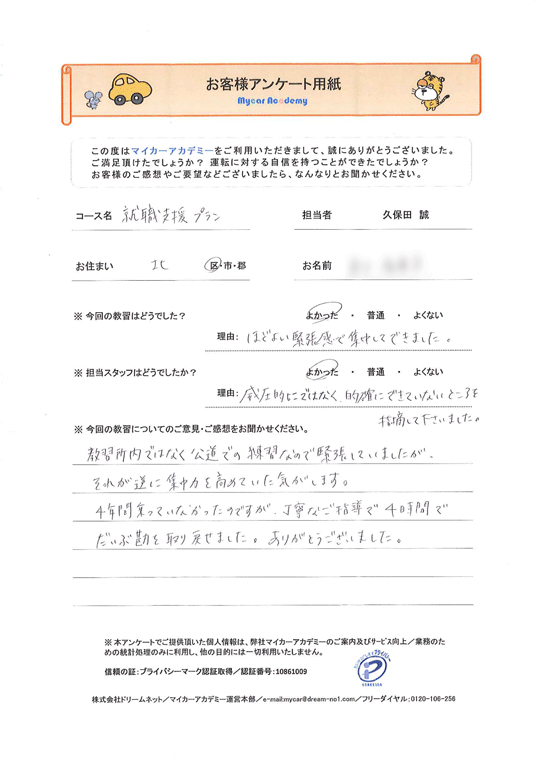 お客様アンケート用紙
Mycar Academy
この度はマイカーアカデミーをご利用いただきまして、誠にありがとうございました。
ご満足頂けたでしょうか？ 運転に対する自信を持つことができたでしょうか？
お客様のご感想やご要望などございましたら、なんなりとお聞かせください。
コース名 就職支援プラン 担当者 久保田 誠
お住まい 北 区・市・郡 お名前
※ 今回の教習はどうでしたか？ よかった ・ 普通 ・ よくない
理由： ほどよい緊張感で集中してできました。
※ 担当スタッフはどうでしたか？ よかった ・ 普通 ・ よくない
理由： 威圧的にではなく、的確にできていないところを
指摘して下さいました。
※ 今回の教習についてのご意見・ご感想をお聞かせください。
教習所内ではなく公道での練習なので緊張していましたが、
それが逆に集中力を高めていた気がします。
4年間乗っていなかったのですが、丁寧なご指導で4日時間で
だいぶ勘を取り戻せました。ありがとうございました。
※ 本アンケートでご提供頂いた個人情報は、弊社マイカーアカデミーのご案内及びサービス向上／業務のた
めの統計処理のみに利用し、他の目的には一切利用いたしません。
信頼の証：プライバシーマーク認証取得／認証番号：10861009
株式会社ドリームネット／マイカーアカデミー運営本部／e-mail:mycar@dream-no1.com／フリーダイヤル：0120-106-256